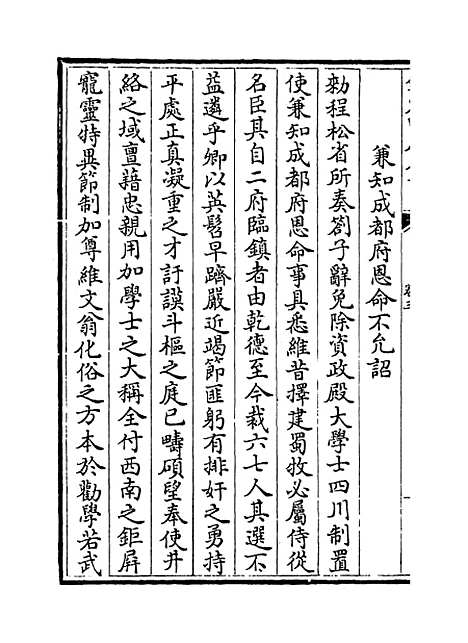 兼知成都府恩命不允詔
勑程松省所奏劄子辭免除資政殿大學士四川制置
使兼知成都府恩命事具悉維昔擇建蜀牧必屬侍從
名臣其自二府臨鎮者由乾德至今裁六七人其選不
益遴乎卿以英髦早躋嚴近竭節匪躬有排奸之勇持
平處正真凝重之才訏謨斗樞之庭已疇碩望奉使井
絡之域亶藉忠親用加學士之大稱全付西南之鉅屏
寵靈特異節制加尊維文翁化俗之方本於勸學若武